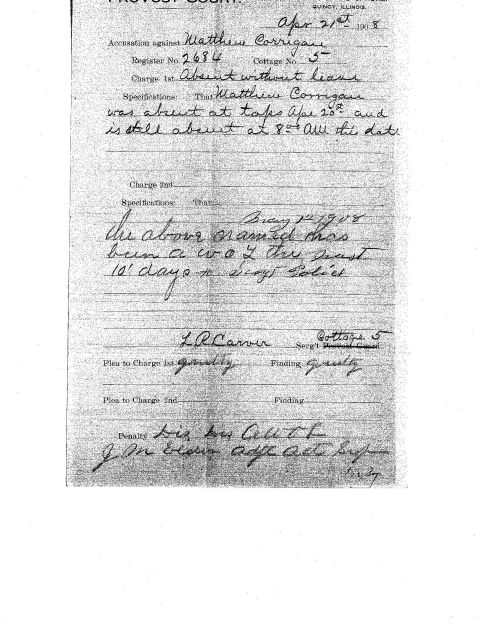 PROVOST COURT.
QUINCY, ILLINOIS.
Apr 21st 1908
Accusation against Matthew Corrigan
Register No. 2684 Cottage No. 5
Charge 1st Absent without leave
Specifications: That Matthew Corrigan
was absent at taps Apr 20st and
is still absent at 8 AM this date
Charge 2nd
Specifications: That
May 1st 1908
The above named has
been a w o L the past
10 days Sergt Police
L A Carver Cottage 5
Serg't Provost Guard
Plea to Charge 1st guilty Finding guilty
Plea to Charge 2nd Finding
Penalty Dis
J M Adjt Actg Supt